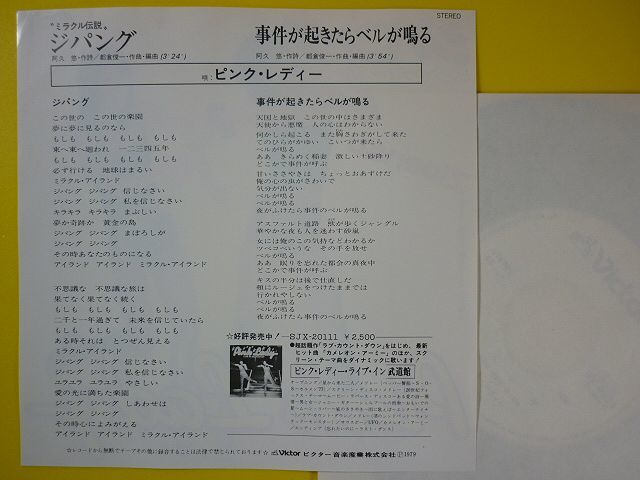 STEREO
“ミラクル伝説”
ジパング
阿久 悠・作詩/都倉俊一・作曲・編曲(3′24″)
事件が起きたらベルが鳴る
阿久 悠・作詩/都倉俊一・作曲・編曲(3′54″)
唄:ピンク・レディー
ジパング
この世の この世の楽園
夢に夢に見るのなら
もしも もしも もしも もしも
東へ東へ廻われ 一二三四五年
もしも もしも もしも もしも
必ず行ける 地球はまるい
ミラクル・アイランド
ジパング ジパング 信じなさい
ジパング ジパング 私を信じなさい
キラキラ キラキラ まぶしい
夢か奇跡か 黄金の島
ジパング ジパング まぼろしが
ジパング ジパング
その時あなたのものになる
アイランド アイランド ミラクル・アイランド
不思議な 不思議な旅は
果てなく果てなく続く
もしも もしも もしも もしも
二千と一年過ぎて 未来を信じていたら
もしも もしも もしも もしも
ある時それは とつぜん見える
ミラクル・アイランド
ジパング ジパング 信じなさい
ジパング ジパング 私を信じなさい
ユラユラ ユラユラ やさしい
愛の光に満ちた楽園
ジパング ジパング しあわせは
ジパング ジパング
その時心によみがえる
アイランド アイランド ミラクル・アイランド
事件が起きたらベルが鳴る
天国と地獄 この世の中はさまざま
天使から悪魔 人の心はわからない
何かしら起こる また胸さわぎがして来た
てのひらがかゆい こいつが来たら
ベルが鳴る
ああ きらめく稲妻 激しい土砂降り
どこかで事件が呼ぶ
甘いささやきは ちょっとおあずけだ
俺の心の虫がさわいで
気分が出ない
ベルが鳴る
ベルが鳴る
夜がふけたら事件のベルが鳴る
アスファルト道路 獣が歩くジャングル
華やかな夜も人を迷わす砂嵐
女には俺のこの気持などわかるか
ツベコベいうな その手を放せ
ベルが鳴る
ああ 眠りを忘れた都会の真夜中
どこかで事件が呼ぶ
キスの半分は後で仕直した
頬にルージュをつけたままでは
行かれやしない
ベルが鳴る
ベルが鳴る
夜がふけたら事件のベルが鳴る
☆好評発売中!—SJX-20111 ¥2,500
●超話題作「ラブ・カウント・ダウン」をはじめ、最新
ヒット曲「カメレオン・アーミー」のほか、スク
リーン・テーマ曲をダイナミックに歌います!
ピンク・レディー・ライブ・イン 武道館
☆レコードから無断でテープその他に録音することは法律で禁じられております☆
Victor ビクター音楽産業株式会社 Ⓟ1979